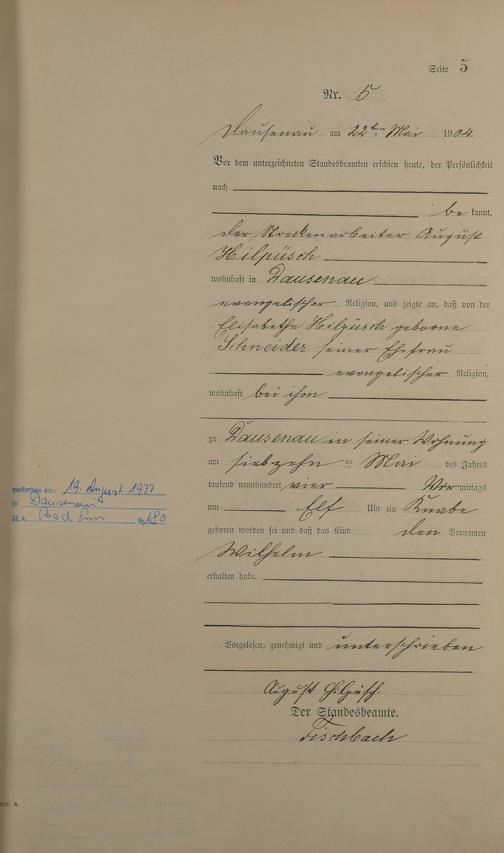 Seite 5
Nr. 5
Dausenau am 22ten Mai 1904.
Vor dem unterzeichneten Standesbeamten erschien heute, der Persönlichkeit
nach
bekannt,
der Streckenarbeiter August
Hilpüsch
wohnhaft in Dausenau
evangelischer Religion, und zeigte an, daß von der
Elisabethe Hilpüsch geborene
Schneider seiner Ehefrau
evangelischer Religion,
wohnhaft bei ihm
zu Dausenau in seiner Wohnung
am siebzehn ten Mai des Jahres
tausend neunhundert vier Vormittags
um Elf Uhr ein Knabe
geboren worden sei und daß das Kind den Vornamen
Wilhelm
erhalten habe.
Vorgelesen, genehmigt und unterschrieben
August Hilpüsch.
Der Standesbeamte.
Fischbach
gestorben am: 19. August 1977
in Dausenau
St. A. Bad Ems Nr. 180
A.